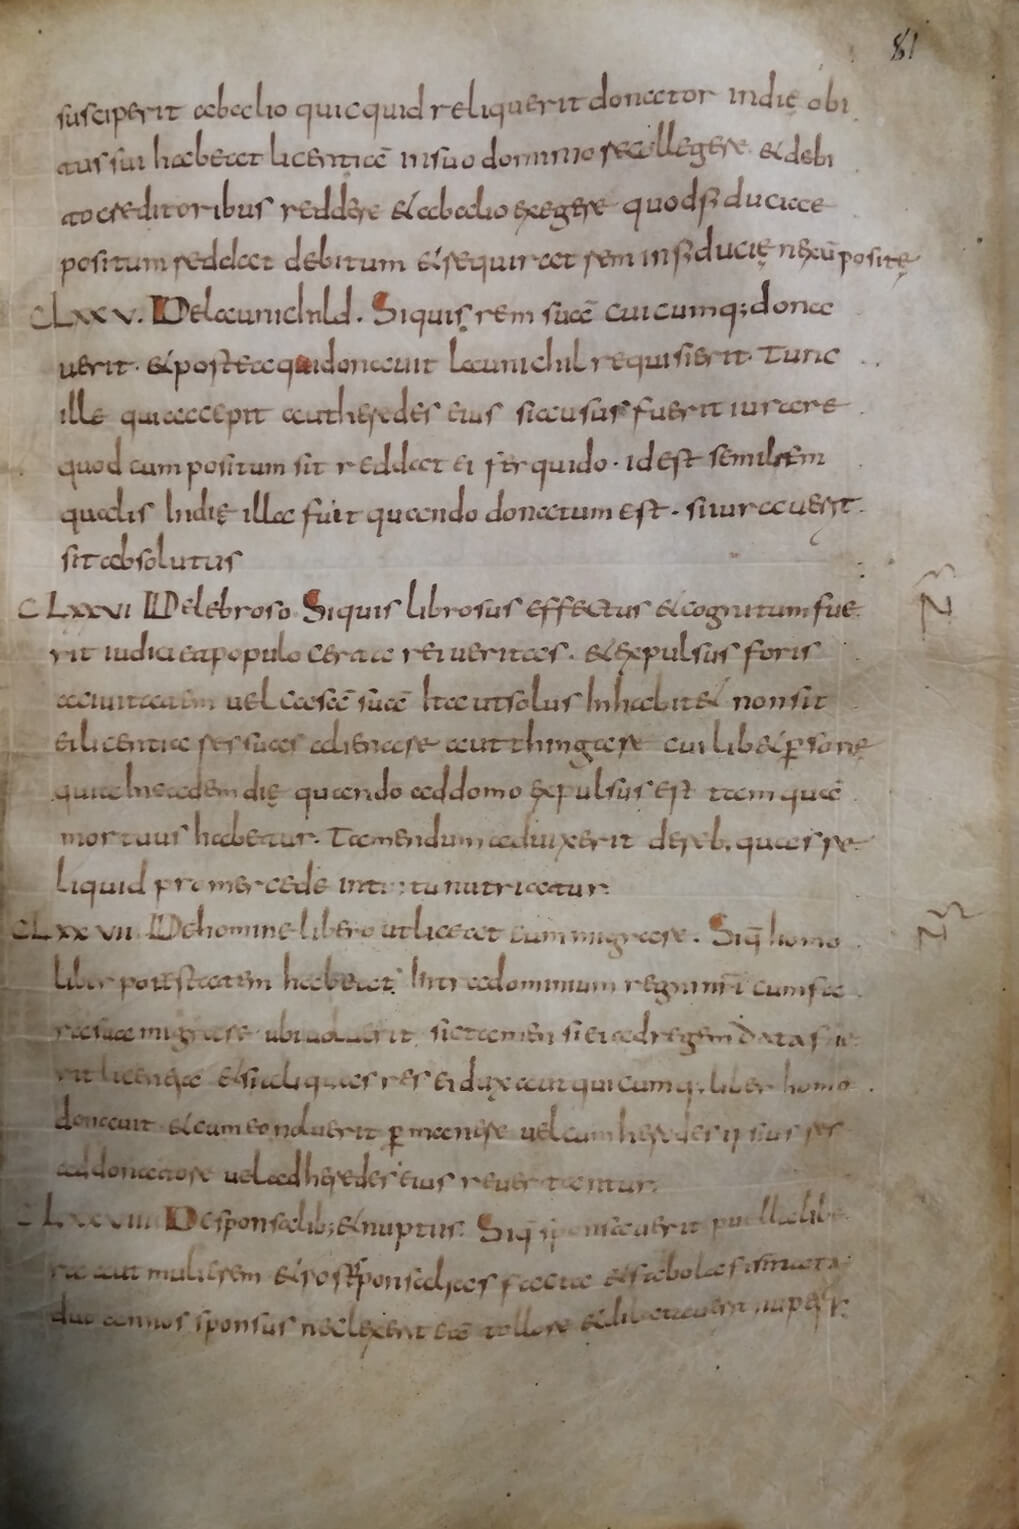 81
susciperit abalio quicquid reliquerit donator in die obi
tus sui habeat licentiā in suo dominio recollegere et debi
to creditoribus reddere et ab alio exegere quod fiducia
positum reddat debitum et sequirat rem in fiducię nexū positę
CLXXV. De launichild. Siquis rem suā cuicumq; dona
uerit. et postea qui donauit launichil requisierit. Tunc
ille qui accepit aut heredes eius si ausus fuerit iurare
quod cumpositum sit reddat ei ferquido. id est semilem
qualis In die illa fuit quando donatum est. si iurauerit
sit absolutus
CLXXVI De lebroso. Siquis librosus effectus et cognitum fue
rit iudici ea populo certa rei ueritas. et expulsus foris
a ciuitatem uel casā suā Ita ut solus Inhabitet non sit
ei licentia res suas alienare aut thingare cui libet ꝑsonę
quia In eadem die quando ad domo expulsus est tamquā
mortuus habetur. Tamen dum aduixerit de reb. quas re
liquid pro mercede nutriatur.
CLXXVII De homine libero ut liceat eum migrare. Siq̄ homo
liber potestatem habeat Intra dominium regni nr̄i cum fa
ra sua migrare ubi uoluerit sic tamen si ei ad regem data fue
rit licentia et si aliquas res ei dux aut quicumq; liber homo
donauit et cum eo noluerit ꝑmanere uel cum heredes ipsius res
ad donatore uel ad heredes eius reuertantur.
CLXXVIII De sponsalib; et nuptus. Siq̄ sponsauerit puella libe
ra aut mulierem et post sponsalias facta et fabola firmata
duo annos sponsus neclexerit eā tollere et